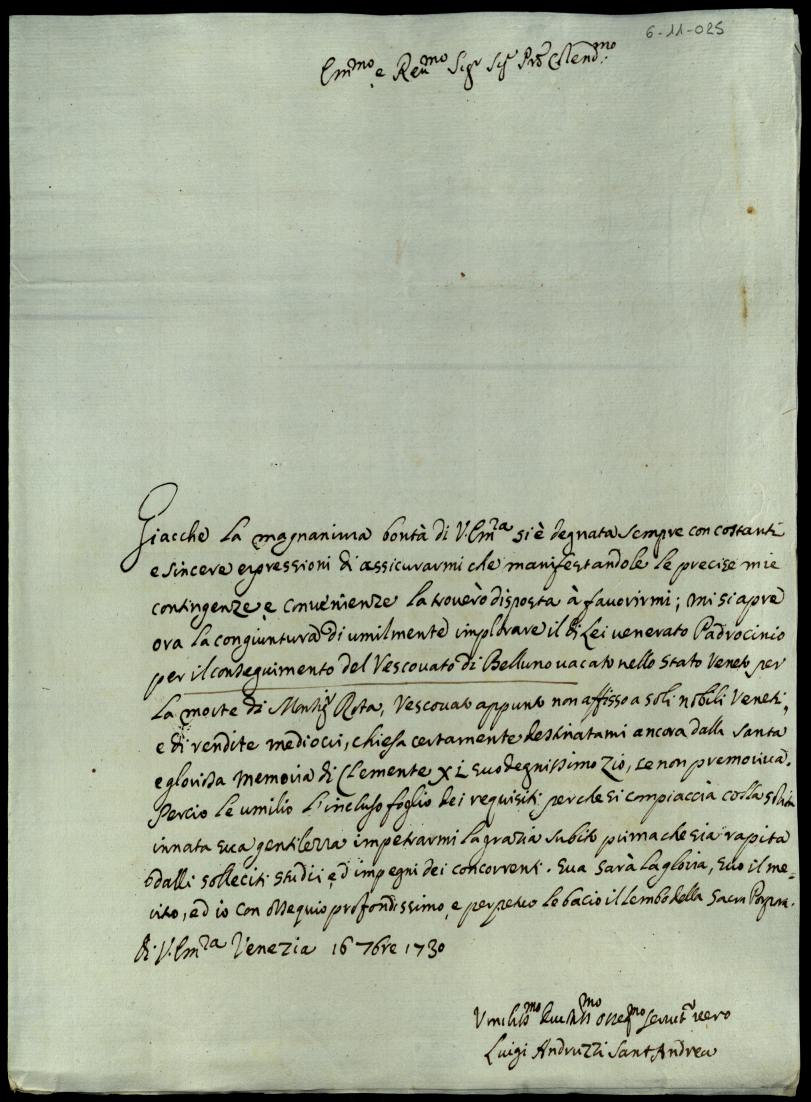 6-11-025
Em.mo e Reu.mo Sig.r Sig.r Pron Colend.mo
Giacche la magnanima bontà di V. Em.za si è degnata sempre con costanti
e sincere expressioni di assicurarmi che manifestandole le precise mie
contingenze e conuenienze la trouerò disposta à fauorirmi; mi si apre
ora la congiuntura di umilmente implorare il di Lei uenerato Padrocinio
per il conseguimento del Vescouato di Belluno uacato nello stato Veneto per
la morte di Monsig.r Rota, Vescouato appunto non affisso a soli nobili Veneti,
e di rendite mediocri, chiesa certamente destinatami ancora dalla santa
e gloriosa memoria di Clemente XI suo degnissimo zio, se non premoriua.
Percio le umilio l'incluso foglio dei requisiti perche si compiaccia colla solita
innata sua gentilezza impetrarmi la grazia subito prima che sia rapita
dalli solleciti studii ed impegni dei concorrenti. Sua sarà la gloria, suo il me-
rito, ed io con ossequio profondissimo, e perpetuo le bacio il lembo della Sacra Porpora.
di V. Em.za Venezia 16 7bre 1730
Vmiliss.mo Deuotiss.mo osseq.mo seruit.r uero
Luigi Andruzzi Sant Andrea